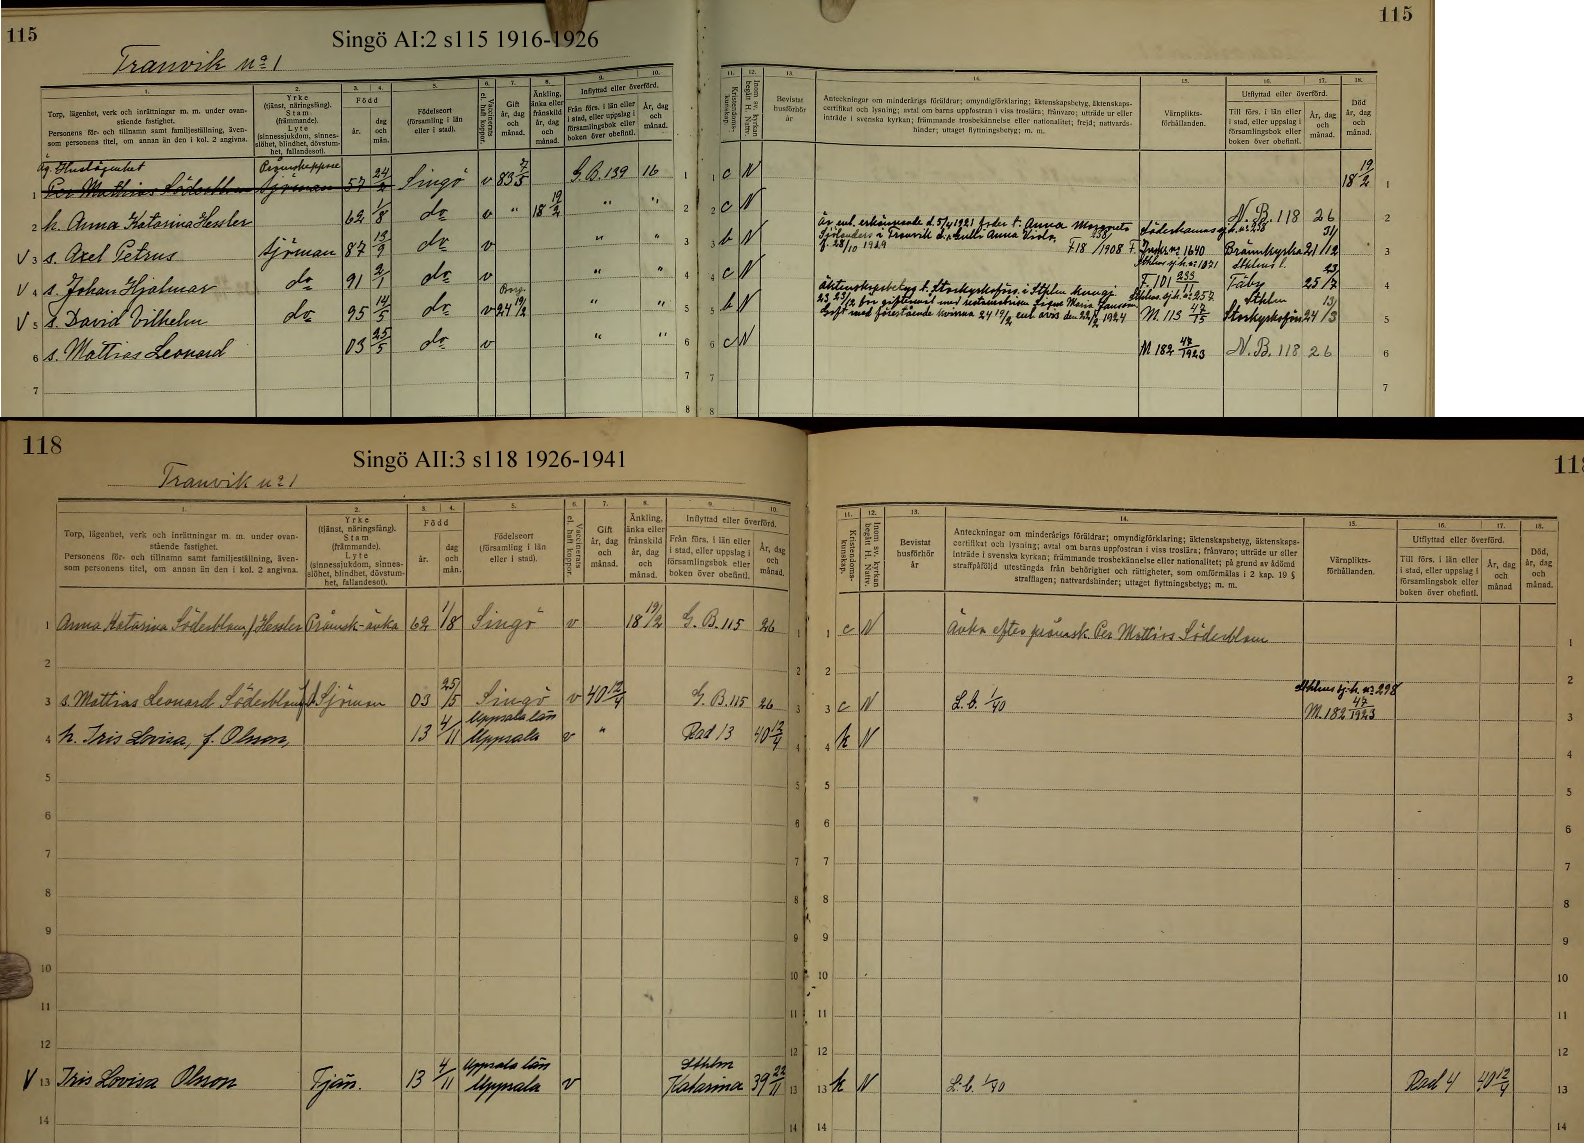 115
Singö AI:2 s115 1916-1926
115
Tranvik nº 1
1.
2.
3.
4.
5.
6.
7.
8.
9.
10.
11.
12.
13.
14.
15.
16.
17.
18.
Torp, lägenhet, verk och inrättningar m. m. under ovan-
stående fastighet.
Personens för- och tillnamn samt familjeställning, även-
som personens titel, om annan än den i kol. 2 angivna.
Yrke
(tjänst, näringsfång).
Stam
(främmande).
Lyte
(sinnessjukdom, sinnes-
slöhet, blindhet, dövstum-
het, fallandesot).
Född
år.
dag
och
mån.
Födelseort
(församling i län
eller i stad).
Vaccinerats
el. haft koppor.
Gift
år, dag
och
månad.
Änkling,
änka eller
frånskild
år, dag
och
månad.
Inflyttad eller överförd.
Från förs. i län eller
i stad, eller uppslag i
församlingsbok eller
boken över obefintl.
År, dag
och
månad.
Kristendoms-
kunskap.
Inom sv. kyrkan
begått H. Nattv.
Bevistat
husförhör
år
Anteckningar om minderårigs föräldrar; omyndigförklaring; äktenskapsbetyg, äktenskaps-
certifikat och lysning; avtal om barns uppfostran i viss troslära; frånvaro; utträde ur eller
inträde i svenska kyrkan; främmande trosbekännelse eller nationalitet; frejd; nattvards-
hinder; uttaget flyttningsbetyg; m. m.
Värnplikts-
förhållanden.
Utflyttad eller överförd.
Till förs. i län eller
i stad, eller uppslag i
församlingsbok eller
boken över obefintl.
År, dag
och
månad.
Död
år, dag
och
månad.
1 Per Mathias Söderblom Sjöman 57 24/2 Singö v 83 7/5 G.B. 139 16 1 1 c N 18 19/2 1
2 h. Anna Katarina Hessler 62 1/8 do v " 18 19/2 " " 2 2 c N N. B. 118 26 2
V 3 s. Axel Petrus sjöman 87 13/9 do v " " 3 3 b N Brännkyrka 21 31/12 3
V 4 s. Johan Hjalmar do 91 2/1 do v " " 4 4 c N Täby Sthlms l. 25 23/7 4
V 5 s. David Vilhelm do 95 14/5 do v Borg. 24 19/2 " " 5 5 b N M. 113 47/15 Sthlm Storkyrkoförs. 24 13/3 5
6 s. Mattias Leonard 03 25/5 do v " " 6 6 c N M 182 47/1923 N. B. 118 26 6
7 7 7 7
8 8
118
Singö AII:3 s118 1926-1941
118
Tranvik nº 1
1.
2.
3.
4.
5.
6.
7.
8.
9.
10.
11.
12.
13.
14.
15.
16.
17.
18.
Torp, lägenhet, verk och inrättningar m. m. under ovan-
stående fastighet.
Personens för- och tillnamn samt familjeställning, även-
som personens titel, om annan än den i kol. 2 angivna.
Yrke
(tjänst, näringsfång).
Stam
(främmande).
Lyte
(sinnessjukdom, sinnes-
slöhet, blindhet, dövstum-
het, fallandesot).
Född
år.
dag
och
mån.
Födelseort
(församling i län
eller i stad).
Vaccinerats
el. haft koppor.
Gift
år, dag
och
månad.
Änkling,
änka eller
frånskild
år, dag
och
månad.
Inflyttad eller överförd.
Från förs. i län eller
i stad, eller uppslag i
församlingsbok eller
boken över obefintl.
År, dag
och
månad.
Kristendoms-
kunskap.
Inom sv. kyrkan
begått H. Nattv.
Bevistat
husförhör
år
Anteckningar om minderårigs föräldrar; omyndigförklaring; äktenskapsbetyg, äktenskaps-
certifikat och lysning; avtal om barns uppfostran i viss troslära; frånvaro; utträde ur eller
inträde i svenska kyrkan; främmande trosbekännelse eller nationalitet; på grund av ådömd
straffpåföljd utestängda från behörighet och rättigheter, som omförmälas i 2 kap. 19 §
strafflagen; nattvardshinder; uttaget flyttningsbetyg; m. m.
Värnplikts-
förhållanden.
Utflyttad eller överförd.
Till förs. i län eller
i stad, eller uppslag i
församlingsbok eller
boken över obefintl.
År, dag
och
månad
Död,
år, dag
och
månad.
1 Anna Katarina Söderblom f. Hessler Prånsk-änka 62 1/8 Singö v 18 19/2 G. B. 115 26 1 1 c N Änka efter prånsk. Per Mattias Söderblom 1
2 2 2 2
3 s. Mattias Leonard Söderblom Sjöman 03 25/5 Singö v 40 12/4 G. B. 115 26 3 3 c N L. b. 1/40 Sthlms sj. h. nº 298 M. 182 47/1923 3
4 h. Iris Lovisa, f. Olsson, 13 4/11 Uppsala län Uppsala v " Rad 13 40 12/4 4 4 k N 4
5 5 5 5
6 6 6 6
7 7 7 7
8 8 8 8
9 9 9 9
10 10 10 10
11 11 11 11
12 12 12 12
V 13 Iris Lovisa Olsson Tjän. 13 4/11 Uppsala län Uppsala v Sthlm Katarina 39 22/11 13 13 k N L. b. 1/40 Rad 4 40 12/4 13
14 14 14 14